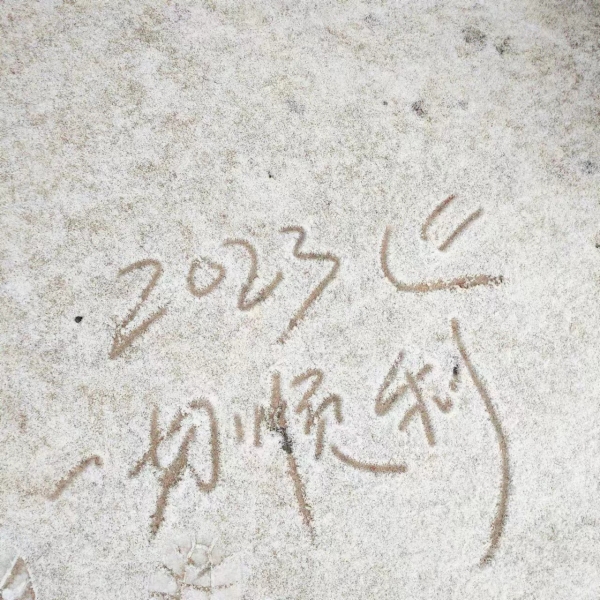 2023
一切顺利